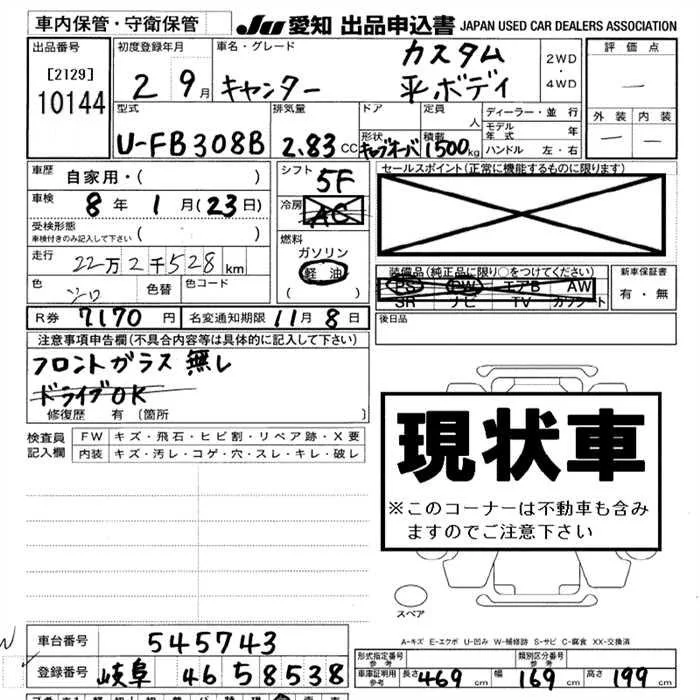 車内保管・守衛保管
JU 愛知 出品申込書 JAPAN USED CAR DEALERS ASSOCIATION
出品番号 初度登録年月 車名・グレード 評価点
[2129] 2 9月 キャンター カスタム 2WD・4WD
10144 平ボディ
型式 排気量 ドア 定員 人 ディーラー・並行 外装 内装
モデル年式 年
U-FB308B 2.83cc 形状 キャブオーバ 積載 1500kg ハンドル 左・右
車歴 自家用・( ) シフト 5F セールスポイント(正常に機能するものに限ります)
車検 8年 1月(23日) 冷房 AC
受検形態
車検付きのみ記入して下さい ( ) 燃料
ガソリン
走行 22万2千528km 軽油 装備品(純正品に限り○をつけてください) 新車保証書
( ) PS PW エアB AW 有・無
色 シロ 色替 色コード SR ナビ TV カワシート
R券 7170円 名変通知期限 11月8日 後日品
注意事項申告欄(不具合内容等は具体的に記入して下さい)
フロントガラス無し
ドライブOK
修復歴 有 (箇所 )
検査員記入欄 FW キズ・飛石・ヒビ割・リペア跡・X要
内装 キズ・汚レ・コゲ・穴・スレ・キレ・破レ
現状車
※このコーナーは不動車も含み
ますのでご注意下さい
スペア
A-キズ E-エクボ U-凹み W-補修跡 S-サビ C-腐食 XX-交換済
車台番号 545743
形式指定番号 参考 類別区分番号 参考
登録番号 岐阜 46 58538
車庫証明用 参考 長さ 469cm 幅 169cm 高さ 199cm